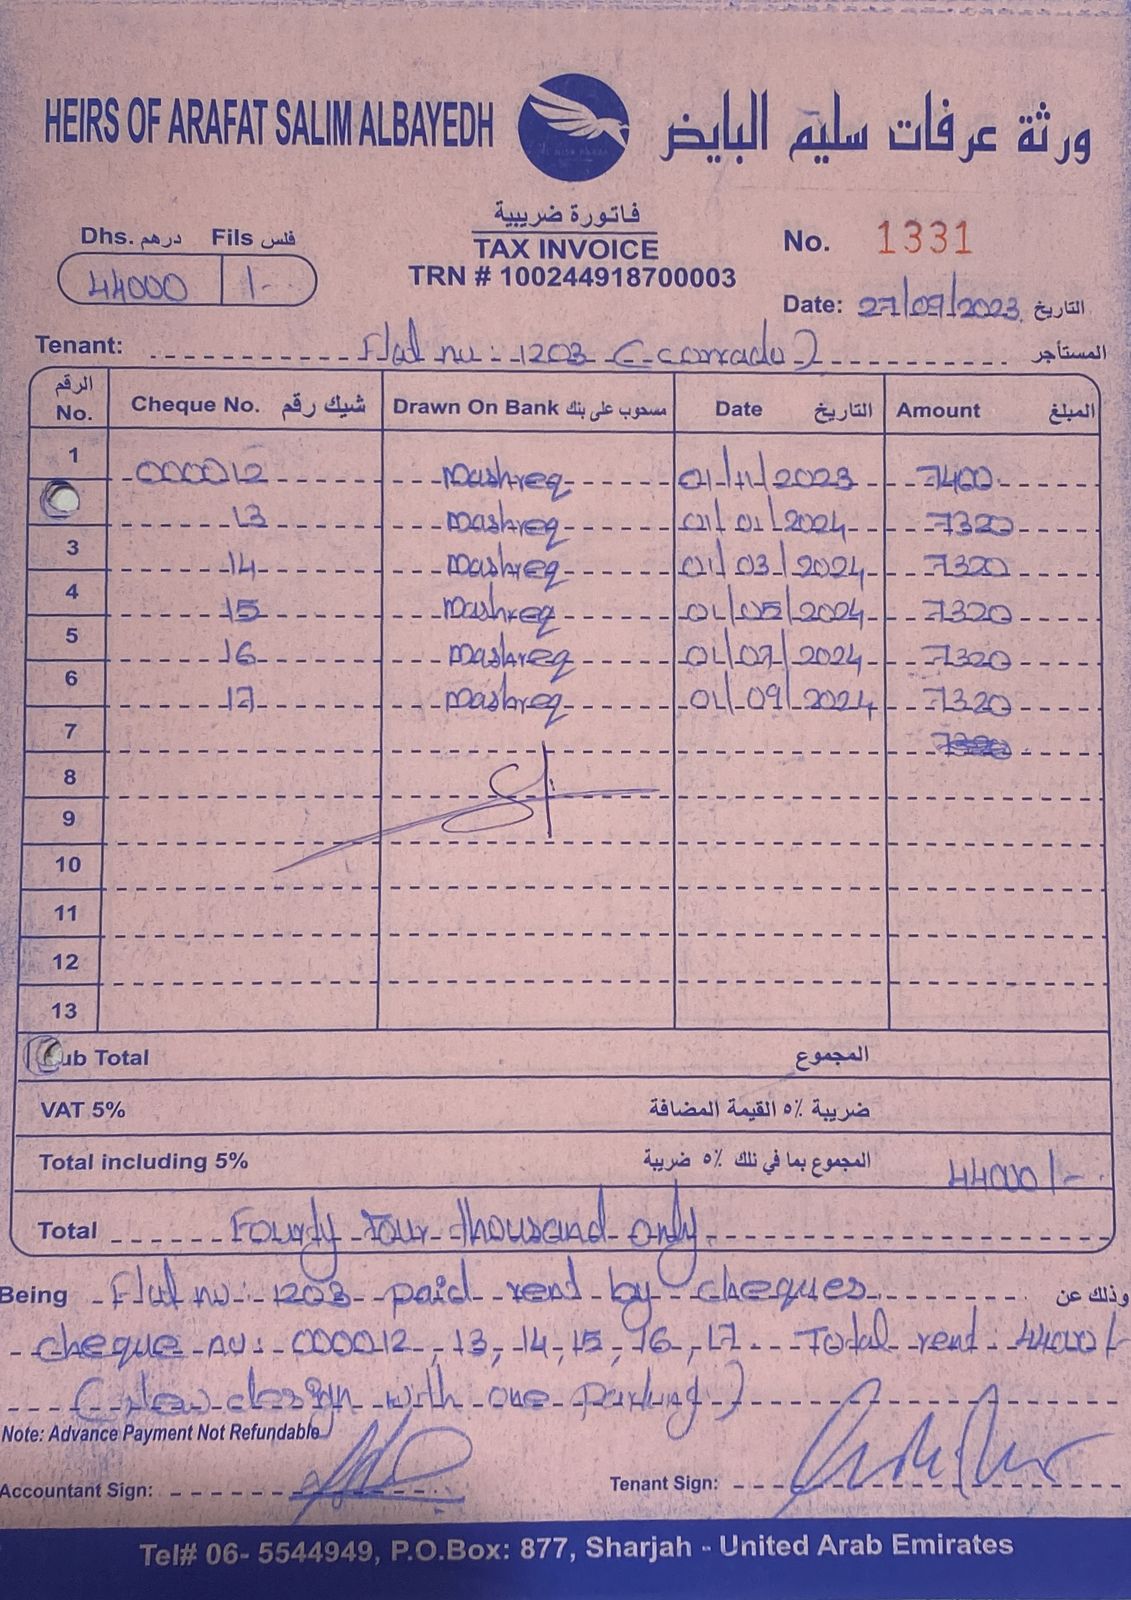 HEIRS OF ARAFAT SALIM ALBAYEDH
ورثة عرفات سليم البايض
فاتورة ضريبية
TAX INVOICE
TRN # 100244918700003
Dhs. درهم Fils فلس
44000 /--
No. 1331
Date: 27/09/2023 التاريخ
Tenant: Flat nu: 1203 (Corrado) المستأجر
الرقم No. Cheque No. شيك رقم Drawn On Bank مسحوب على بنك Date التاريخ Amount المبلغ
1 000012 Mashreq 01/11/2023 7400
13 Mashreq 01/01/2024 7320
3 14 Mashreq 01/03/2024 7320
4 15 Mashreq 01/05/2024 7320
5 16 Mashreq 01/07/2024 7320
6 17 Mashreq 01/09/2024 7320
7
8
9
10
11
12
13
ub Total المجموع
VAT 5% ضريبة ٥٪ القيمة المضافة
Total including 5% المجموع بما في ذلك ٥٪ ضريبة 44000/--
Total Fourty Four thousand only
Being Flat nu: 1203 paid rent by cheques وذلك عن
cheque nu: 000012, 13, 14, 15, 16, 17. Total rent: 44000/-
(New design with one parking)
Note: Advance Payment Not Refundable
Accountant Sign: Tenant Sign:
Tel# 06- 5544949, P.O.Box: 877, Sharjah - United Arab Emirates